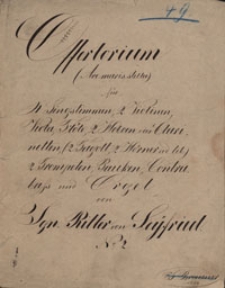 49
Offertorium
(Ave maris stella)
für
4 Singstimmen, 2 Violinen,
Viola, Flöte, 2 Hoboen oder Clari-
netten (2 Fagott, 2 Hörner ad lib)
2 Trompeten, Paucken, Contra
bass und Orgel
von
Ign. Ritter von Seyfried
No 2